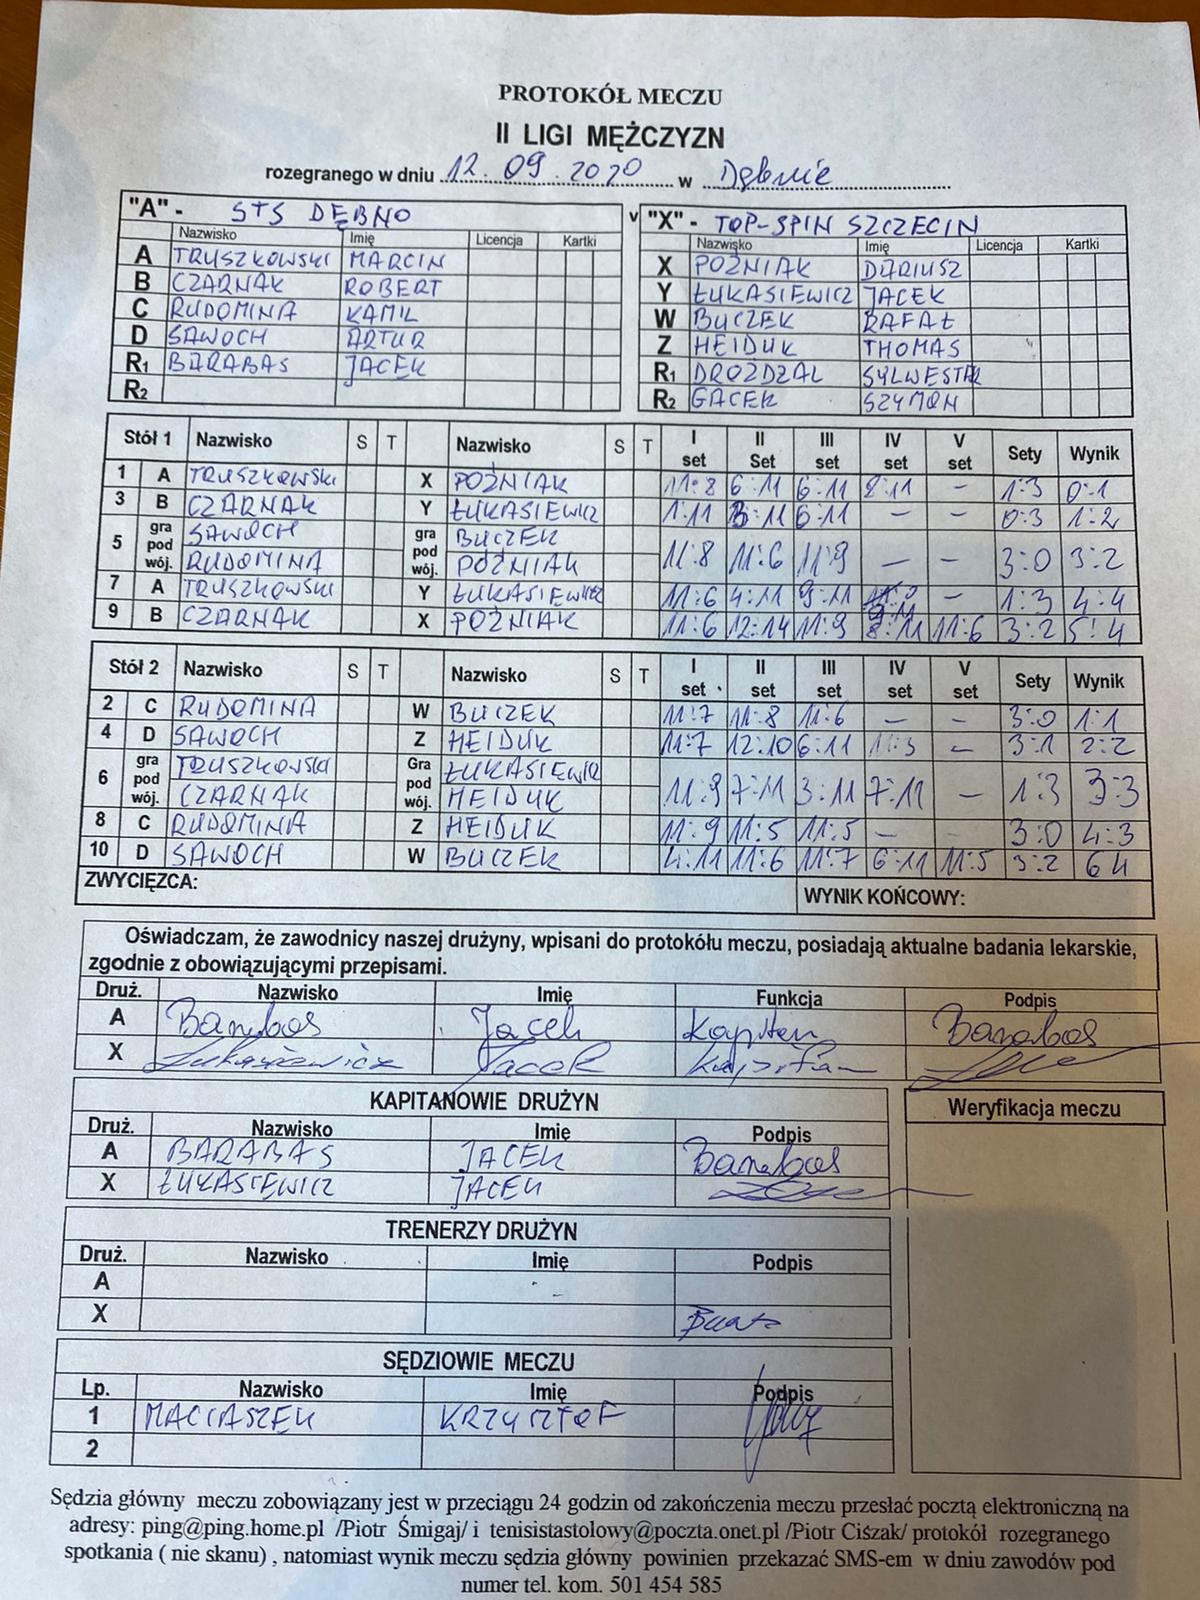 PROTOKÓŁ MECZU
II LIGI MĘŻCZYZN
rozegranego w dniu 12.09.2020 w Dębnie
"A" - STS DĘBNO v "X" - TOP-SPIN SZCZECIN
Nazwisko Imię Licencja Kartki Nazwisko Imię Licencja Kartki
A TRUSZKOWSKI MARCIN X POŹNIAK DARIUSZ
B CZARNAK ROBERT Y ŁUKASIEWICZ JACEK
C RUDOMINA KAMIL W BUCZEK RAFAŁ
D SAWOCH ARTUR Z HEIDUK THOMAS
R1 BARABAS JACEK R1 DROŻDŻAL SYLWESTER
R2 R2 GACEK SZYMON
Stół 1 Nazwisko S T Nazwisko S T I set II Set III set IV set V set Sety Wynik
1 A TRUSZKOWSKI X POŹNIAK 11:8 6:11 6:11 8:11 – 1:3 0:1
3 B CZARNAK Y ŁUKASIEWICZ 1:11 3:11 6:11 – – 0:3 1:2
5 gra pod wój. SAWOCH gra pod wój. BUCZEK
RUDOMINA POŹNIAK 11:8 11:6 11:9 – – 3:0 3:2
7 A TRUSZKOWSKI Y ŁUKASIEWICZ 11:6 4:11 9:11 9:11 – 1:3 4:4
9 B CZARNAK X POŹNIAK 11:6 12:14 11:9 8:11 11:6 3:2 5:4
Stół 2 Nazwisko S T Nazwisko S T I set II set III set IV set V set Sety Wynik
2 C RUDOMINA W BUCZEK 11:7 11:8 11:6 – – 3:0 1:1
4 D SAWOCH Z HEIDUK 11:7 12:10 6:11 11:3 – 3:1 2:2
6 gra pod wój. TRUSZKOWSKI Gra pod wój. ŁUKASIEWICZ
CZARNAK HEIDUK 11:9 7:11 3:11 7:11 – 1:3 3:3
8 C RUDOMINA Z HEIDUK 11:9 11:5 11:5 – – 3:0 4:3
10 D SAWOCH W BUCZEK 4:11 11:6 11:7 6:11 11:5 3:2 6 4
ZWYCIĘZCA: WYNIK KOŃCOWY:
Oświadczam, że zawodnicy naszej drużyny, wpisani do protokółu meczu, posiadają aktualne badania lekarskie,
zgodnie z obowiązującymi przepisami.
Druż. Nazwisko Imię Funkcja Podpis
A Barabas Jacek Kapitan Barabas
X Łukasiewicz Jacek Kapitan
KAPITANOWIE DRUŻYN Weryfikacja meczu
Druż. Nazwisko Imię Podpis
A BARABAS JACEK Barabas
X ŁUKASIEWICZ JACEK
TRENERZY DRUŻYN
Druż. Nazwisko Imię Podpis
A
X
SĘDZIOWIE MECZU
Lp. Nazwisko Imię Podpis
1 MACIASZEK KRZYSZTOF
2
Sędzia główny meczu zobowiązany jest w przeciągu 24 godzin od zakończenia meczu przesłać pocztą elektroniczną na
adresy: ping@ping.home.pl /Piotr Śmigaj/ i tenisistastolowy@poczta.onet.pl /Piotr Ciszak/ protokół rozegranego
spotkania ( nie skanu) , natomiast wynik meczu sędzia główny powinien przekazać SMS-em w dniu zawodów pod
numer tel. kom. 501 454 585